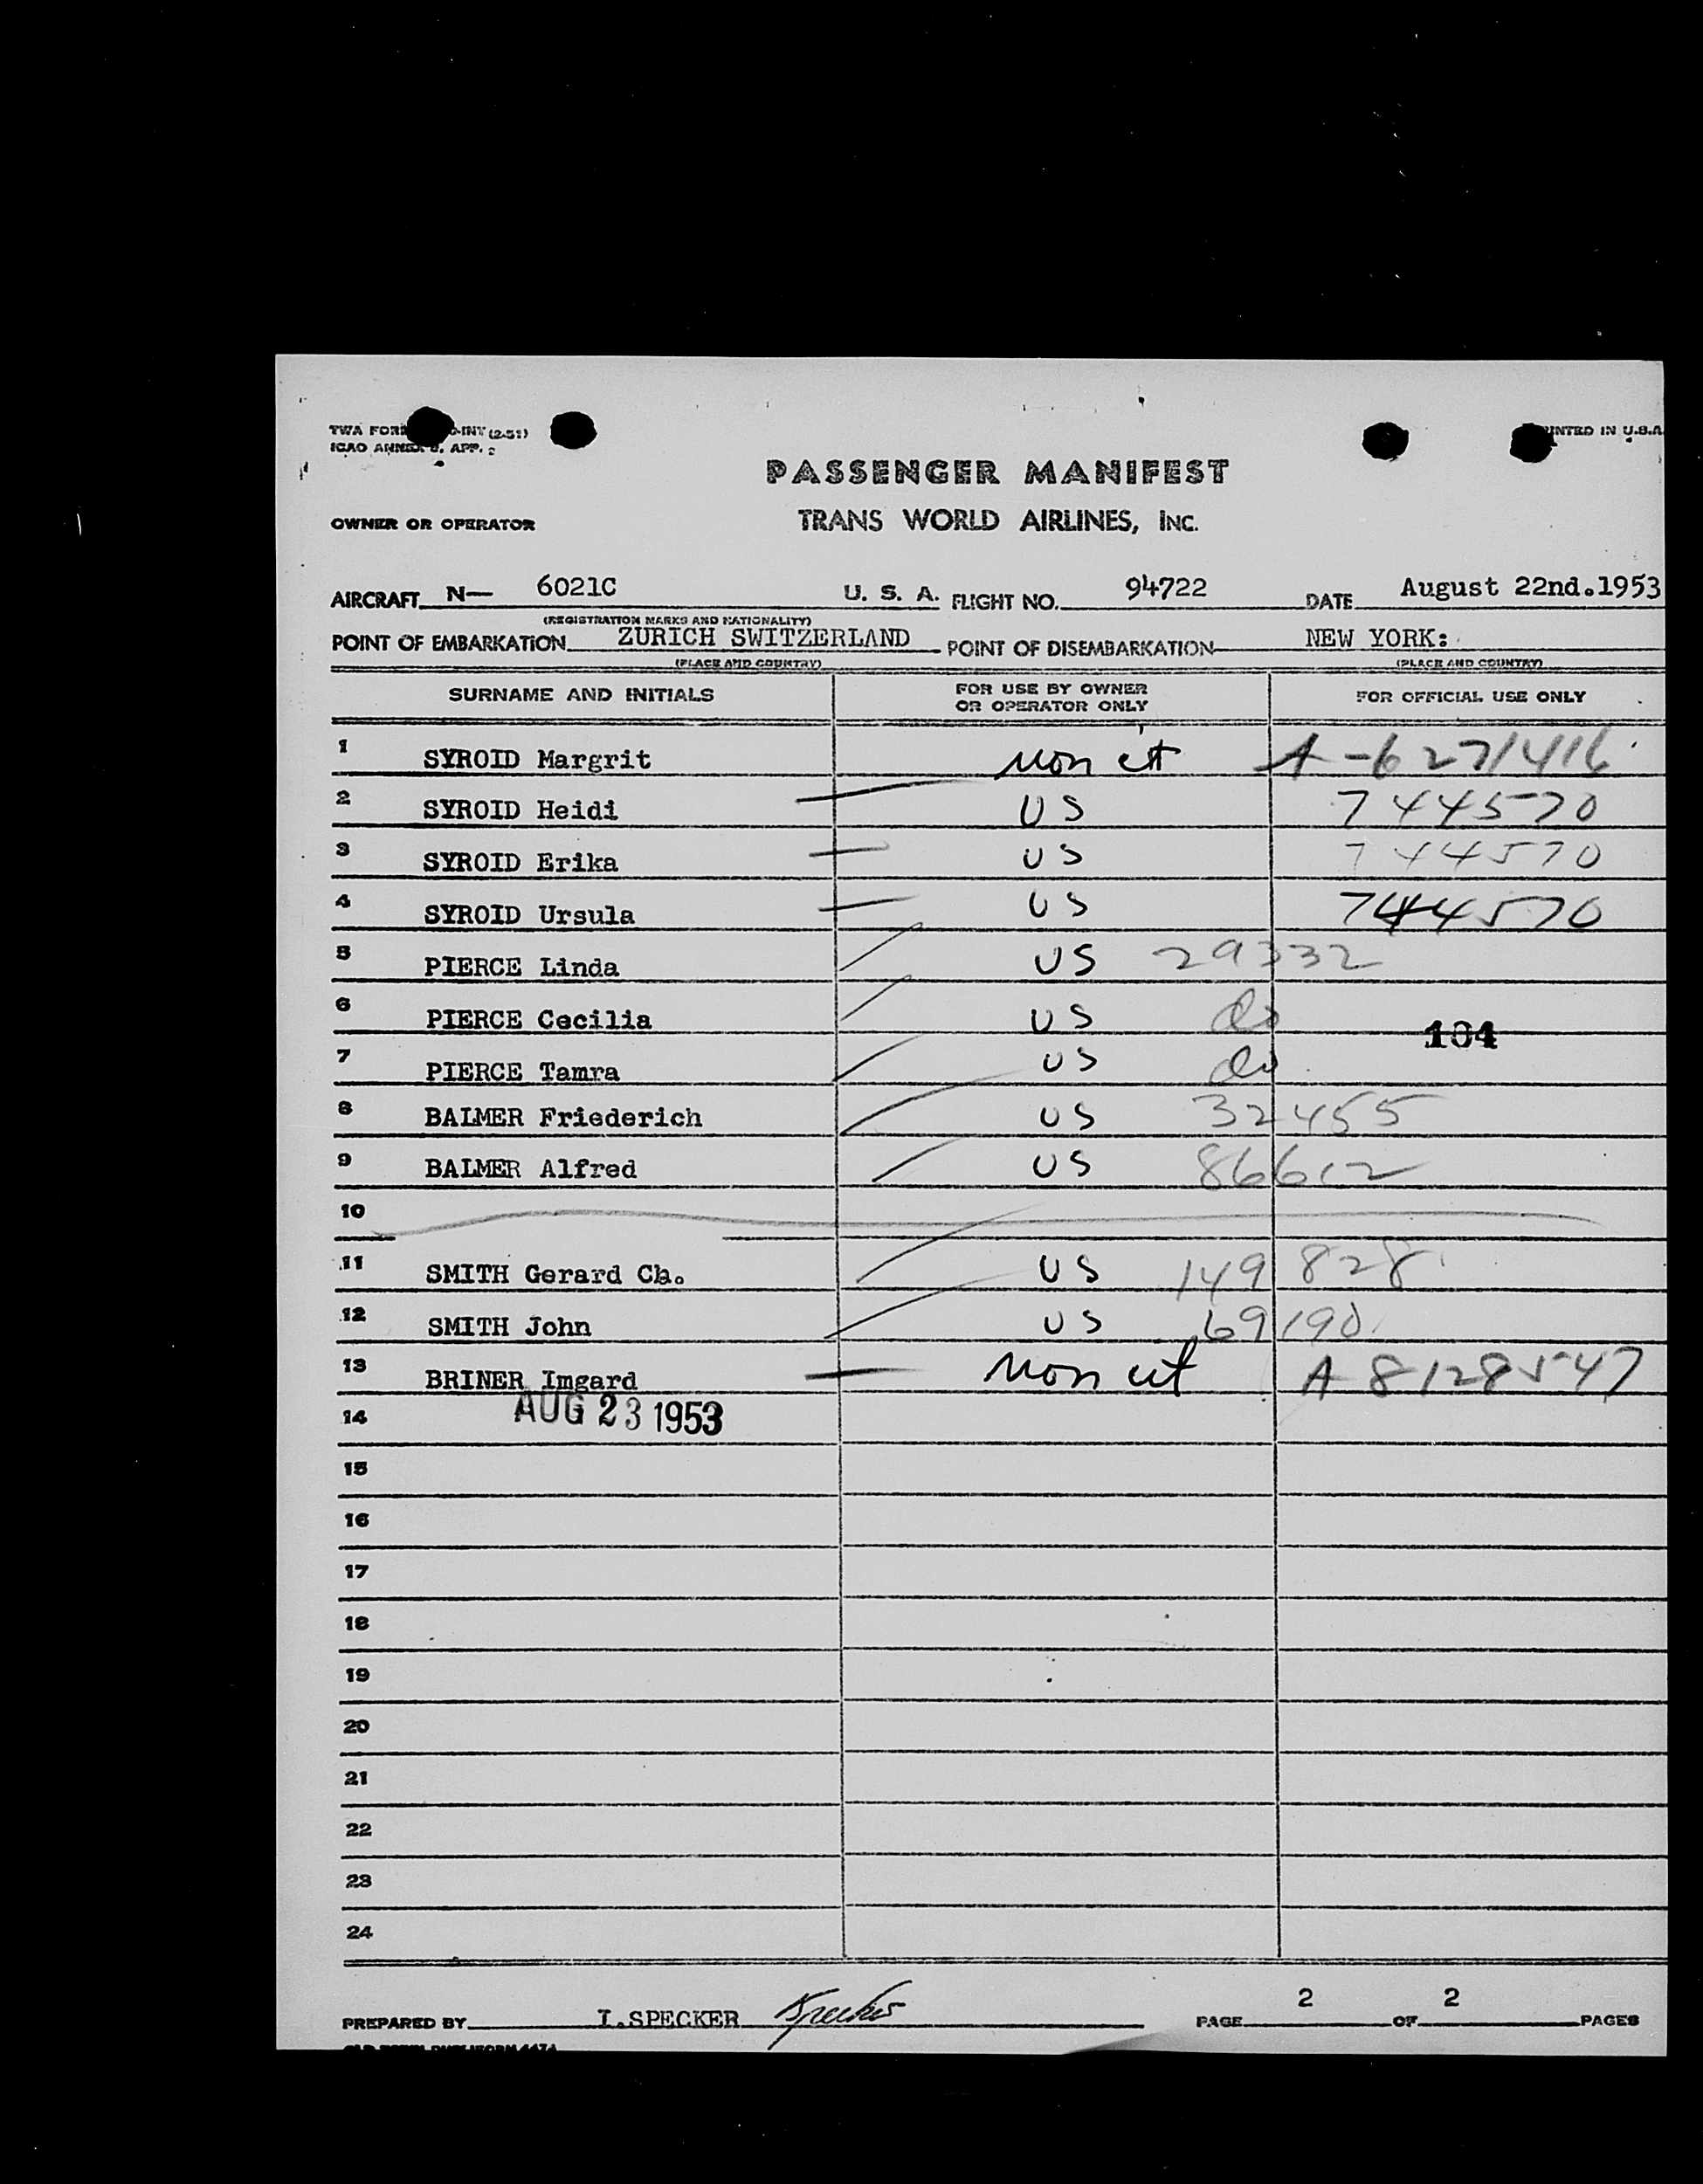 TWA FORM -INT (2-51)
PRINTED IN U.S.A.
ICAO ANNEX 9, APP. 2
PASSENGER MANIFEST
OWNER OR OPERATOR TRANS WORLD AIRLINES, INC.
AIRCRAFT N— 6021C U. S. A. FLIGHT NO. 94722 DATE August 22nd.1953
(REGISTRATION MARKS AND NATIONALITY)
POINT OF EMBARKATION ZURICH SWITZERLAND POINT OF DISEMBARKATION NEW YORK:
(PLACE AND COUNTRY) (PLACE AND COUNTRY)
SURNAME AND INITIALS FOR USE BY OWNER OR OPERATOR ONLY FOR OFFICIAL USE ONLY
1 SYROID Margrit Non cit A-6271416
2 SYROID Heidi US 7445570
3 SYROID Erika US 744570
4 SYROID Ursula US 744570
5 PIERCE Linda US 29332
6 PIERCE Cecilia US do
104
7 PIERCE Tamra US do
8 BALMER Friederich US 32455
9 BALMER Alfred US 86612
10
11 SMITH Gerard Ch. US 149828
12 SMITH John US 69190
13 BRINER Imgard Non cit A 8128547
14 AUG 23 1953
15
16
17
18
19
20
21
22
23
24
PREPARED BY I.SPECKER Specker PAGE 2 OF 2 PAGES